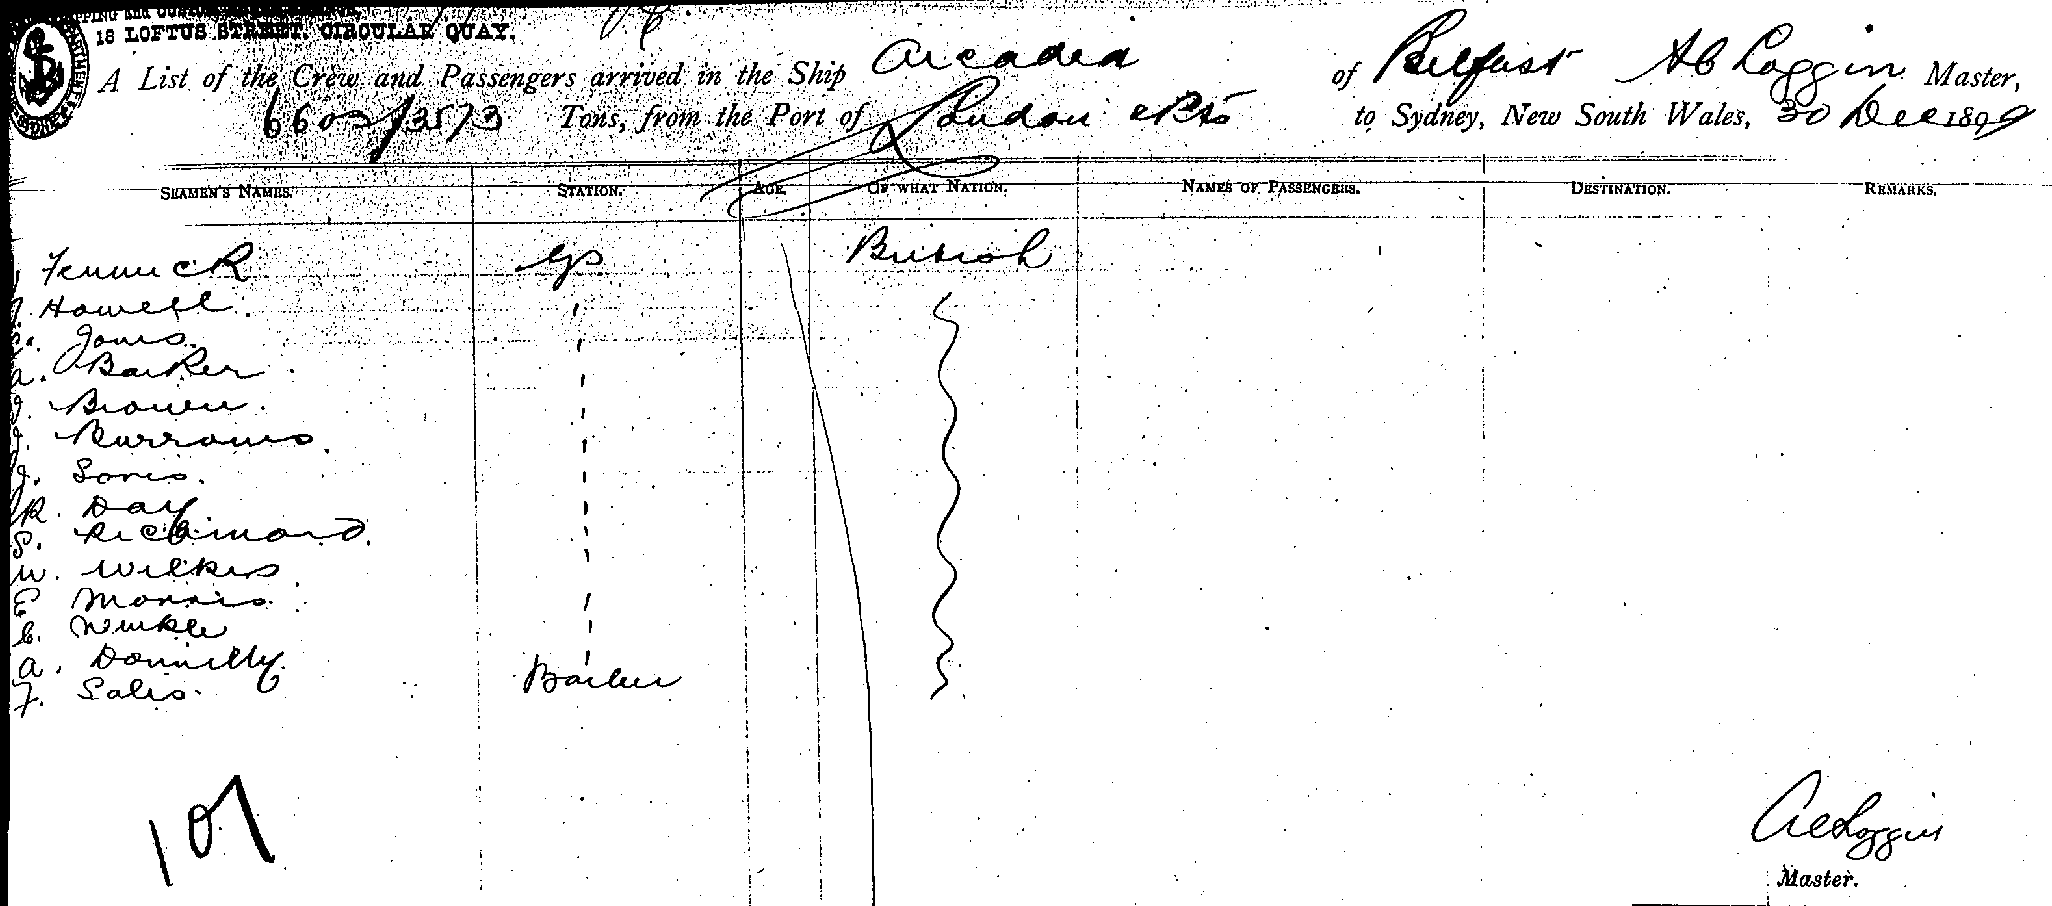 18 LOFTUS STREET, CIRCULAR QUAY.
A List of the Crew and Passengers arrived in the Ship Arcadia of Belfast A C Loggin Master,
6603/3573 Tons, from the Port of London & Pts to Sydney, New South Wales, 30 Dec 1899
SEAMEN'S NAMES. STATION. AGE. OF WHAT NATION. NAMES OF PASSENGERS. DESTINATION. REMARKS.
Fenwick GS British
Howell.
Jones.
a. Barker
J. Brown.
J. Burrows.
J. Sones.
R. Day
S. Richmond.
W. Wilkes
E Morris.
C. Winkle
a. Donnelly.
F. Sales. Barber
107
A C Loggin
Master.